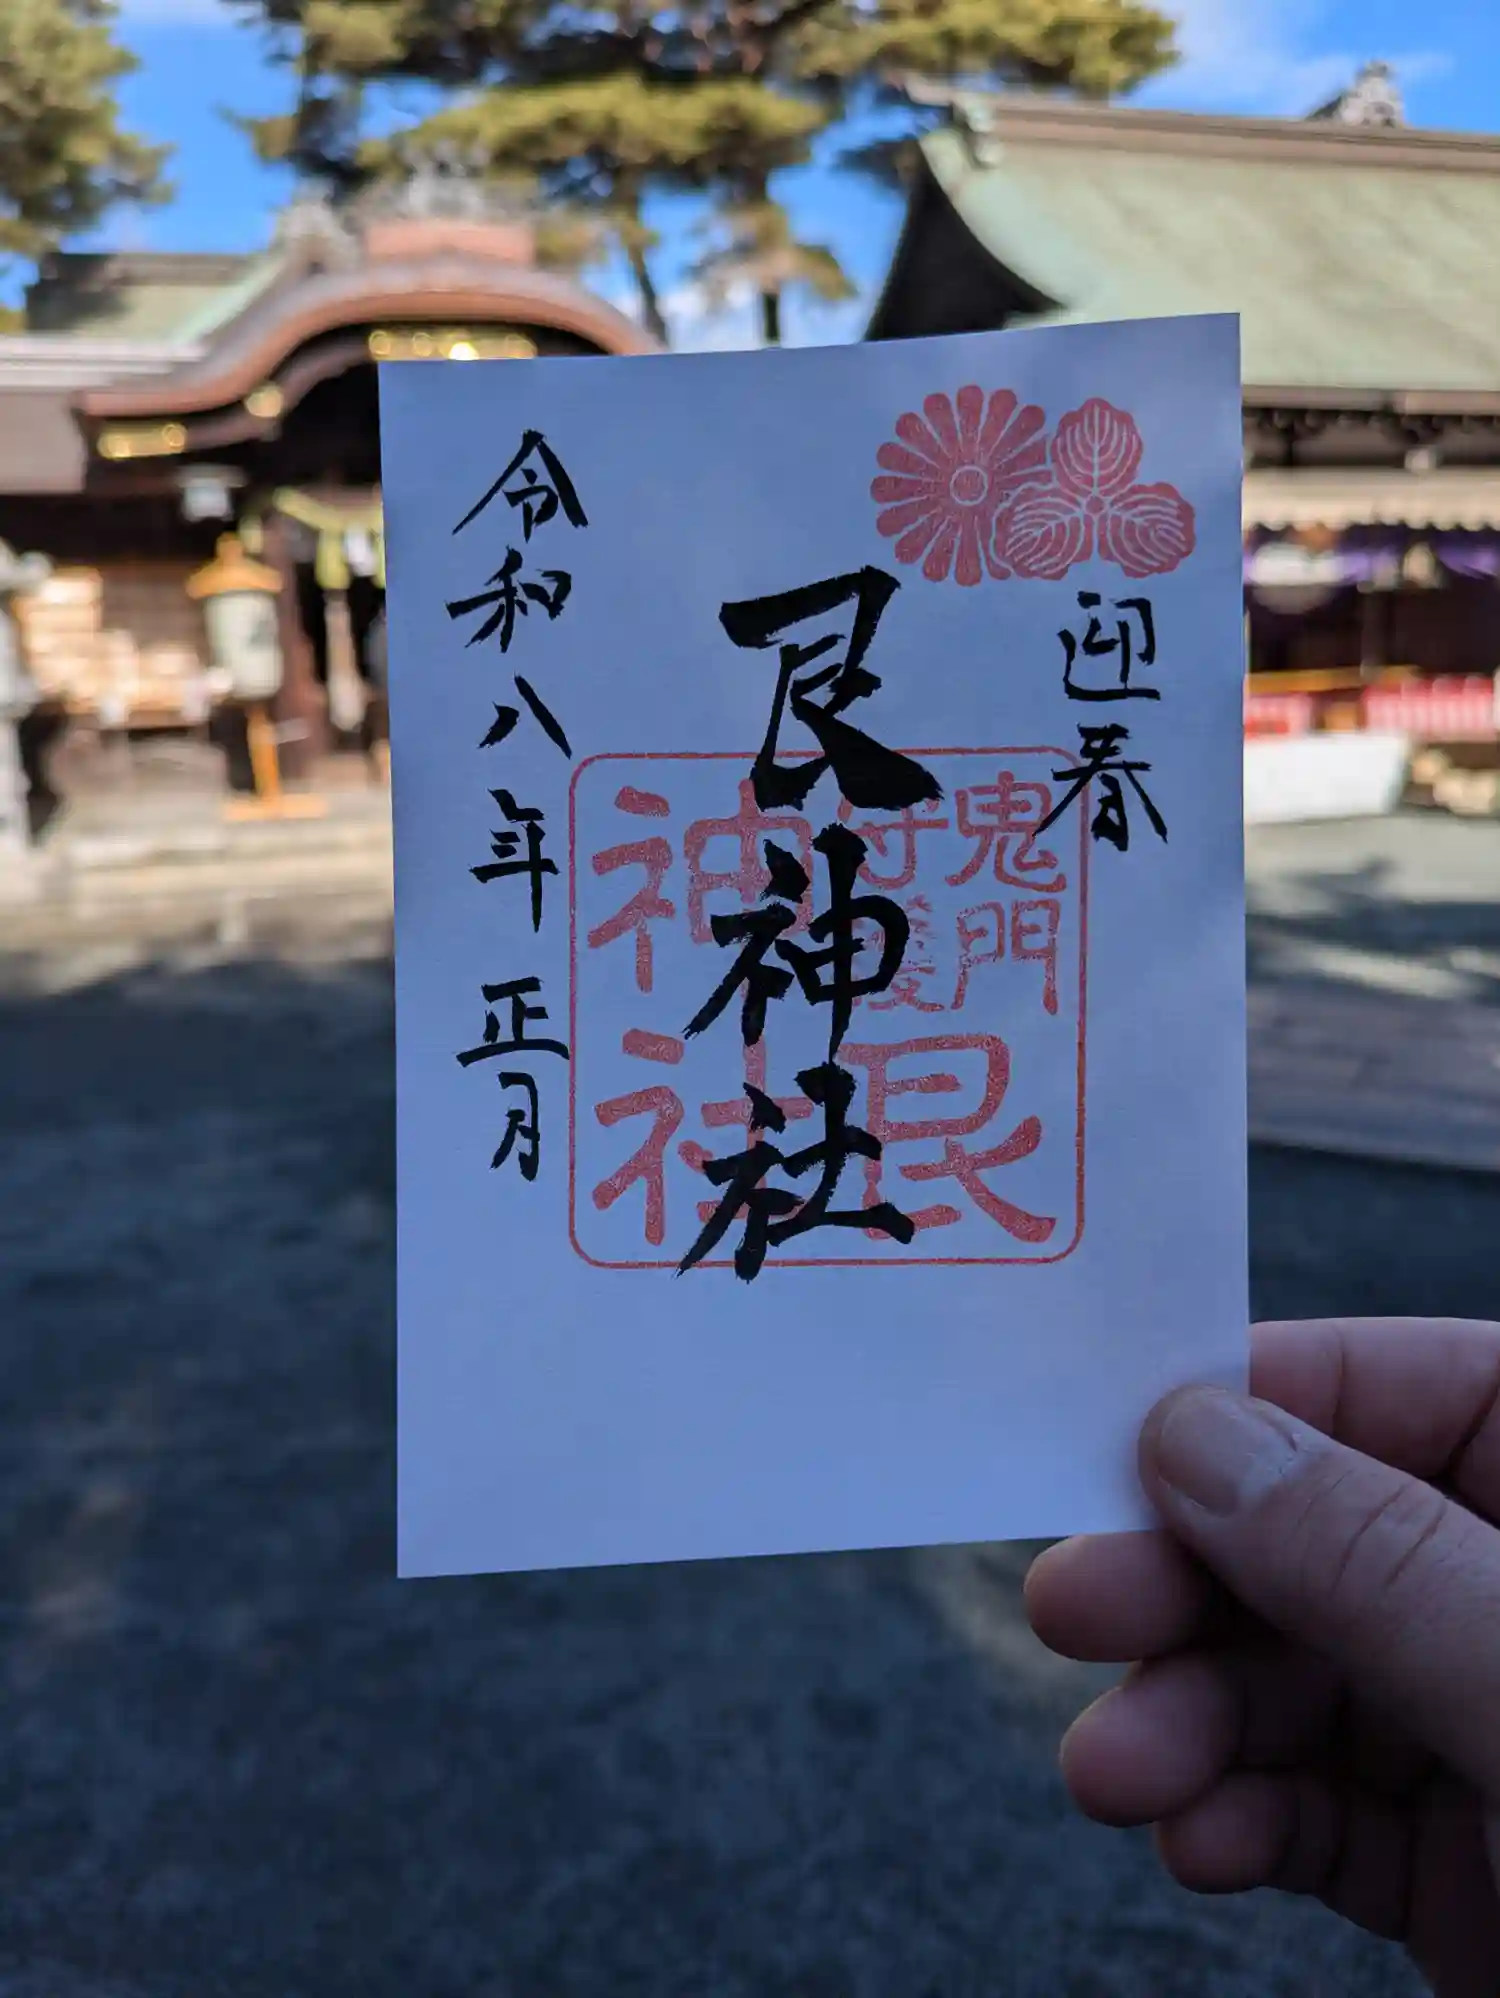 迎春
艮神社
令和八年正月
鬼門
守護
艮
神社